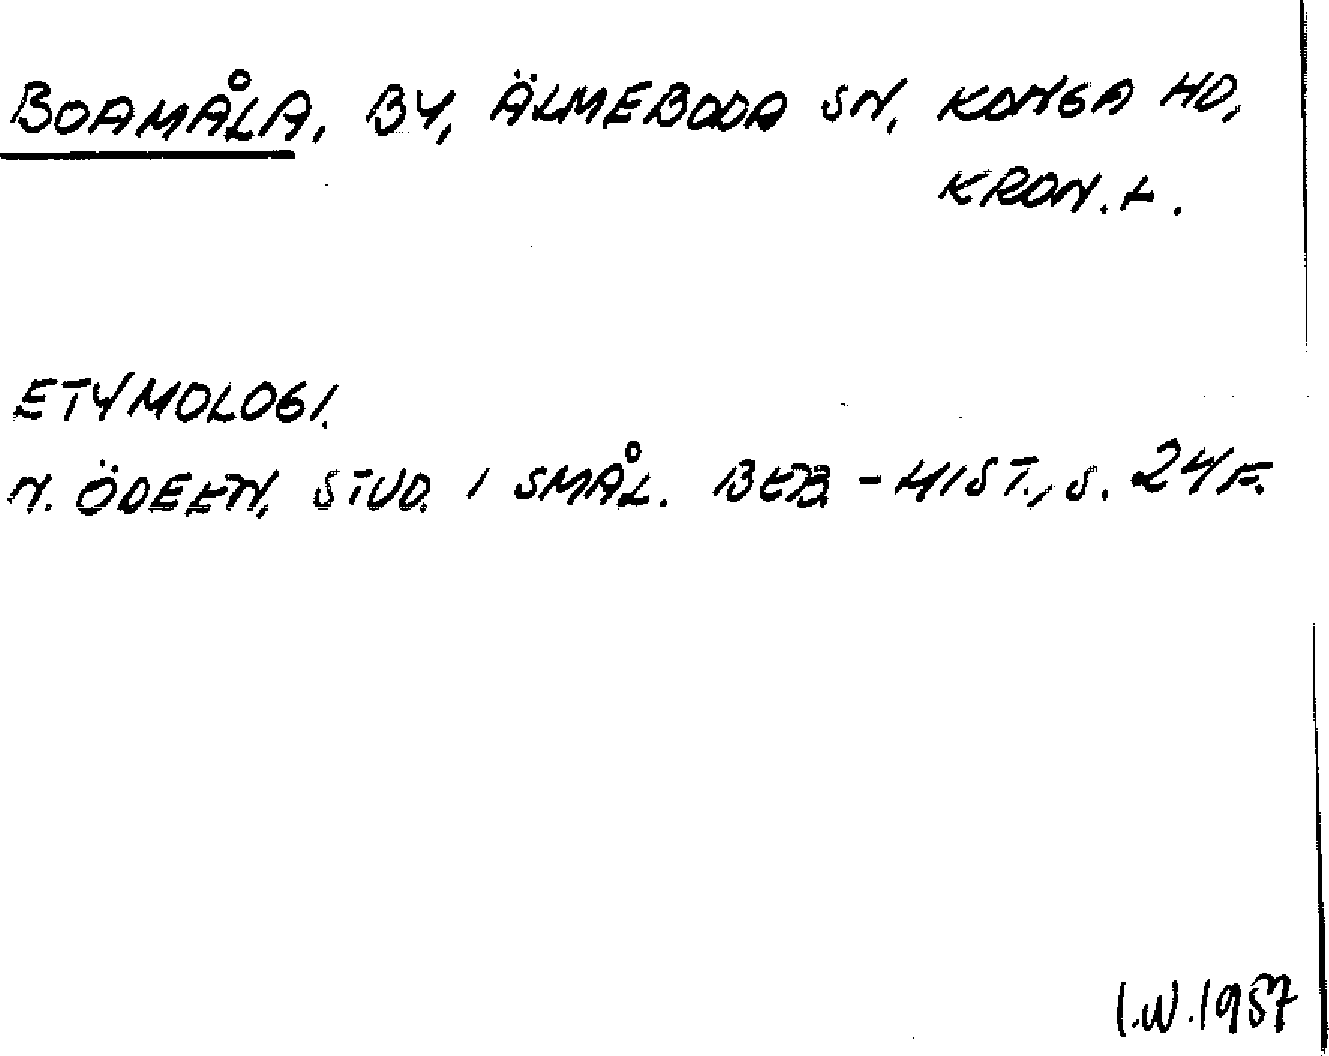 BOAMÅLA, BY, ÄLMEBODA SN, KONGA HD,
KRON. L.
ETYMOLOGI.
N. ÖDEEN, STUD. I SMÅL. BEB-HIST., S. 24 F.
I.W. 1957